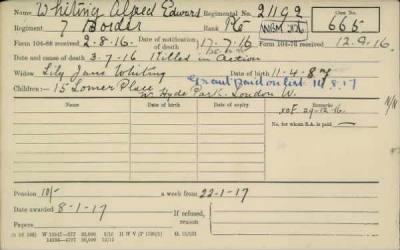 Name Whiting Alfred Edward Regimental No. 21192 Case No.
Regiment 7 Border Rank Pte WGM 665
Form 104-88 received 2.8.16. Date of notification of death 17.7.16 Form 104-76 received 12.9.16.
Date and cause of death 3-7-16 Killed in Action
Widow Lily Jane Whiting Date of birth 11-4-87
Grant Paid on list 14.8.17
Children:— 15 Lomer Place
Nr Hyde Park. London W.
Names Date of birth Names Date of birth Remarks
29-12-16.
No. for whom S.A. is paid
N/N
Pension 10/- a week from 22-1-17
Date awarded 8-1-17 If refused, reason
Papers